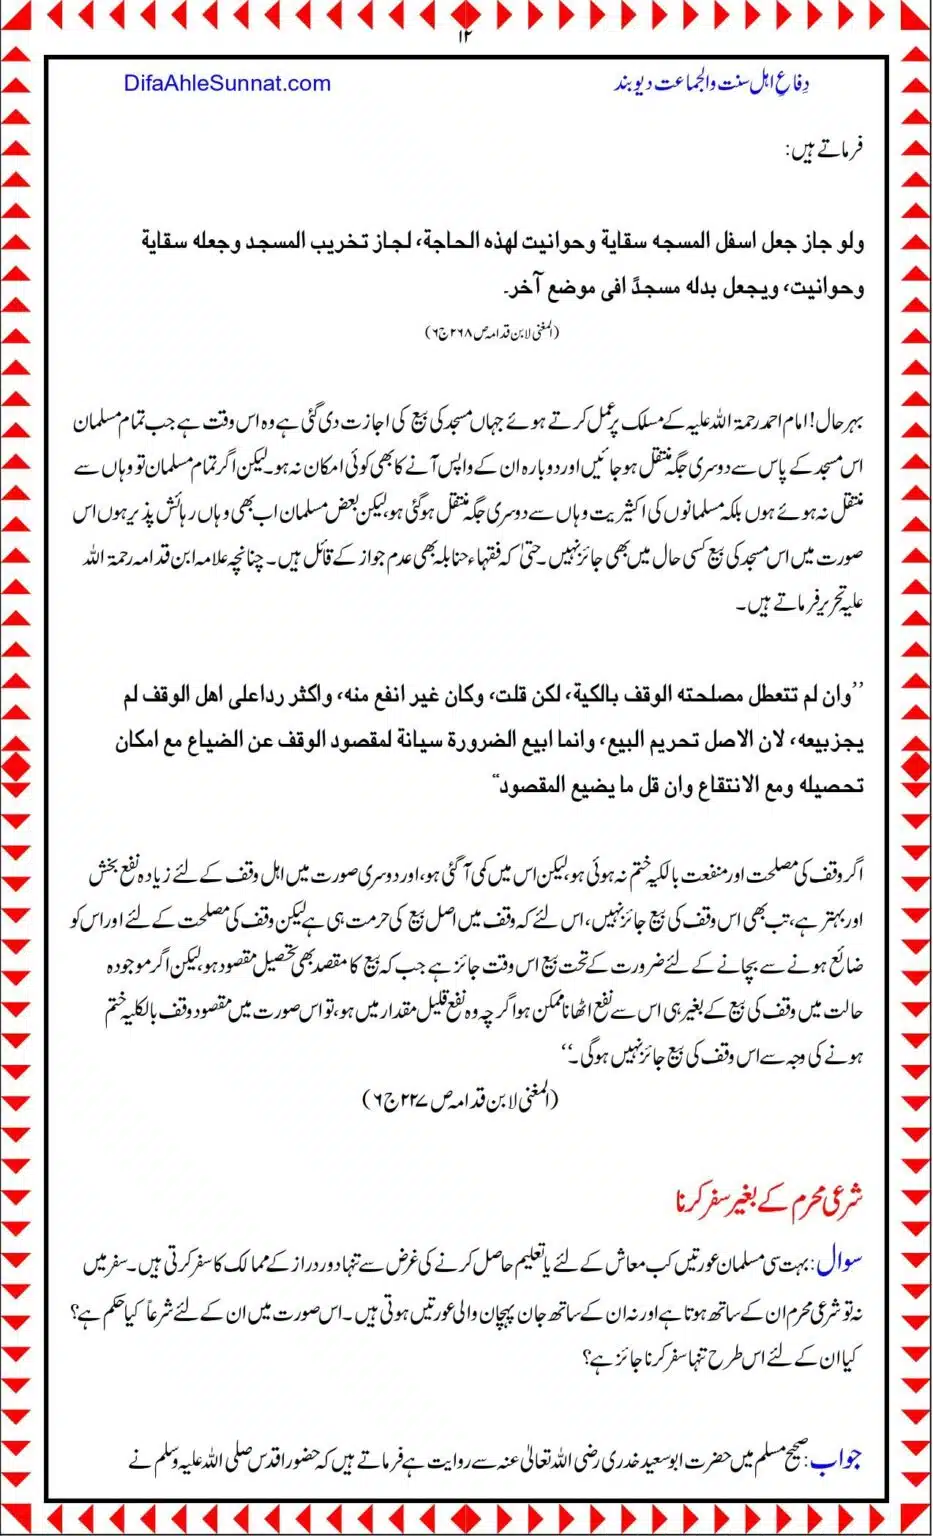 ۱۲
دِفاعِ اہل سنت والجماعت دیوبند DifaAhleSunnat.com
فرماتے ہیں:
ولو جاز جعل اسفل المسجه سقاية وحوانيت لهذه الحاجة، لجاز تخريب المسجد وجعله سقاية
وحوانيت، ويجعل بدله مسجدًا افى موضع آخر۔
(المغنی لابن قدامہ ص ۲۶۸ ج ۶)
بہر حال! امام احمد رحمۃ اللہ علیہ کے مسلک پر عمل کرتے ہوئے جہاں مسجد کی بیع کی اجازت دی گئی ہے وہ اس وقت ہے جب تمام مسلمان
اس مسجد کے پاس سے دوسری جگہ منتقل ہو جائیں اور دوبارہ ان کے واپس آنے کا بھی کوئی امکان نہ ہو۔ لیکن اگر تمام مسلمان تو وہاں سے
منتقل نہ ہوئے ہوں بلکہ مسلمانوں کی اکثیریت وہاں سے دوسری جگہ منتقل ہو گئی ہو، لیکن بعض مسلمان اب بھی وہاں رہائش پذیر ہوں اس
صورت میں اس مسجد کی بیع کسی حال میں بھی جائز نہیں۔ حتیٰ کہ فقہاء حنابلہ بھی عدم جواز کے قائل ہیں۔ چنانچہ علامہ ابن قدامہ رحمۃ اللہ
علیہ تحریر فرماتے ہیں۔
’’وان لم تتعطل مصلحته الوقف بالكية، لكن قلت، وكان غير انفع منه، واكثر رداعلى اهل الوقف لم
يجزبيعه، لان الاصل تحريم البيع، وانما ابيع الضرورة سيانة لمقصود الوقف عن الضياع مع امكان
تحصيله ومع الانتقاع وان قل ما يضيع المقصود‘‘
اگر وقف کی مصلحت اور منفعت بالکیہ ختم نہ ہوئی ہو، لیکن اس میں کمی آ گئی ہو، اور دوسری صورت میں اہل وقف کے لئے زیادہ نفع بخش
اور بہتر ہے، تب بھی اس وقف کی بیع جائز نہیں، اس لئے کہ وقف میں اصل بیع کی حرمت ہی ہے لیکن وقف کی مصلحت کے لئے اور اس کو
ضائع ہونے سے بچانے کے لئے ضرورت کے تحت بیع اس وقت جائز ہے جب کہ بیع کا مقصد بھی تحصیل مقصود ہو، لیکن اگر موجودہ
حالت میں وقف کی بیع کے بغیر ہی اس سے نفع اٹھانا ممکن ہو اگر چہ وہ نفع قلیل مقدار میں ہو، تو اس صورت میں مقصود وقف بالکلیہ ختم
ہونے کی وجہ سے اس وقف کی بیع جائز نہیں ہو گی۔‘‘
(المغنی لابن قدامہ ص ۲۲۷ ج ۶)
شرعی محرم کے بغیر سفر کرنا
سوال: بہت سی مسلمان عورتیں کب معاش کے لئے یا تعلیم حاصل کرنے کی غرض سے تنہا دور دراز کے ممالک کا سفر کرتی ہیں۔ سفر میں
نہ تو شرعی محرم ان کے ساتھ ہوتا ہے اور نہ ان کے ساتھ جان پہچان والی عورتیں ہوتی ہیں۔ اس صورت میں ان کے لئے شرعاً کیا حکم ہے؟
کیا ان کے لئے اس طرح تنہا سفر کرنا جائز ہے؟
جواب: صحیح مسلم میں حضرت ابو سعید خدری رضی اللہ تعالیٰ عنہ سے روایت ہے فرماتے ہیں کہ حضور اقدس صلی اللہ علیہ وسلم نے